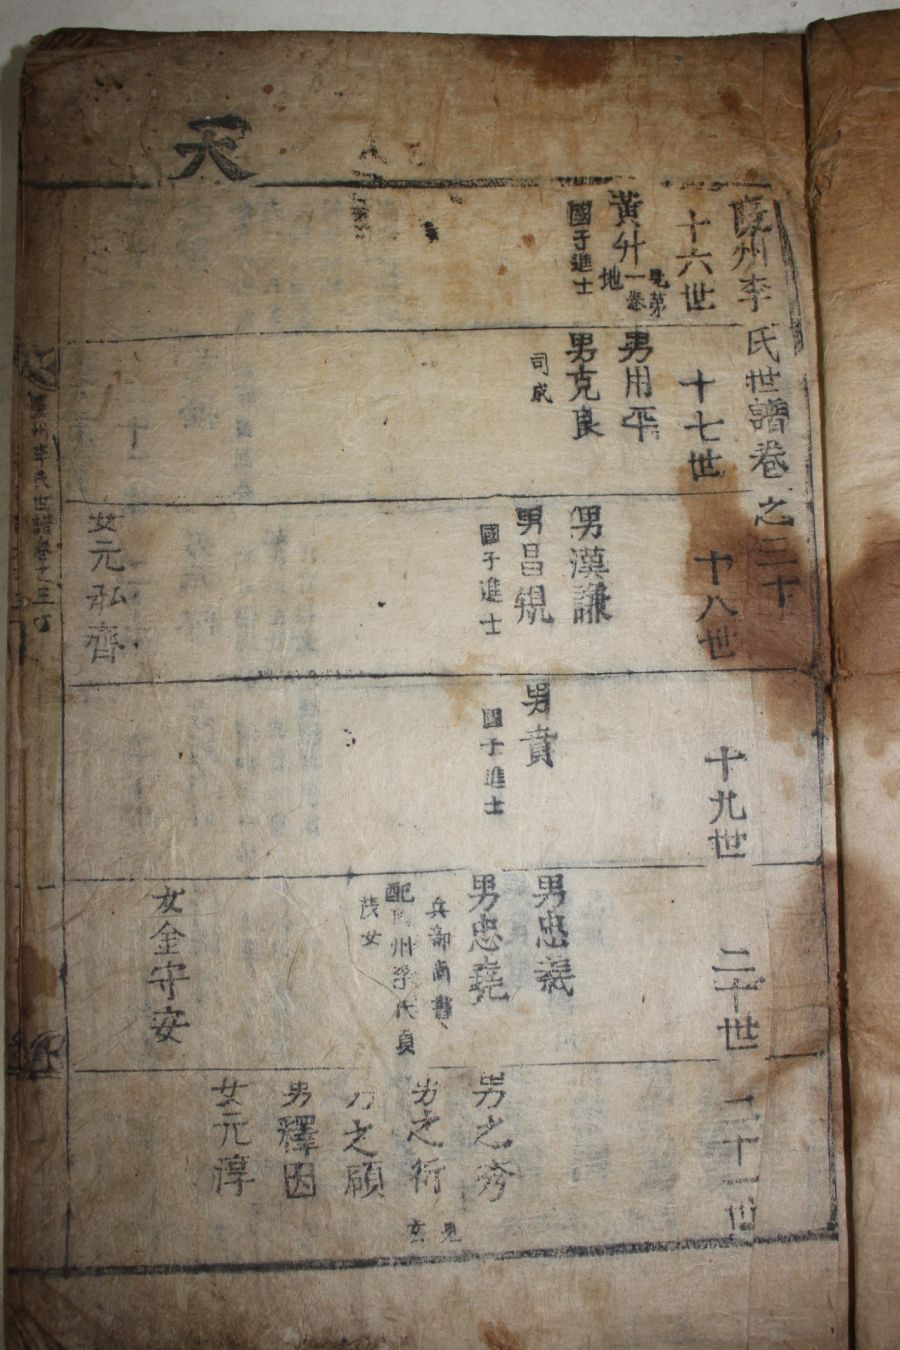 天
慶州李氏世譜卷之三十
十六世
黃升
見第一卷地
國子進士
十七世
男用平
男克良
司成
十八世
男漢謙
男昌規
國子進士
女元弘齊
十九世
男賁
國子進士
二十世
男忠義
男忠堯
兵部尚書
茂女
女金守安
二十一世
男之秀
男之衍
見玄
之頎
男釋因
女元淳
李氏世譜卷之三